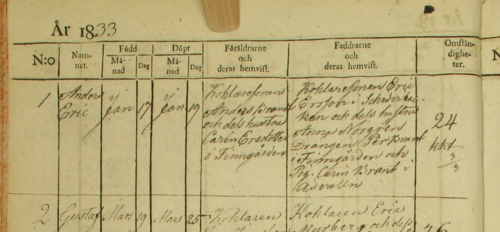 År 1833
N:o Namnet. Född Månad Dag Döpt Månad Dag Föräldrarne och deras hemvist. Faddrarne och deras hemvist. Omständigheter.
1 Anders Eric Jan 17 Jan 19
Kohlaresonen
Anders Brandt
och dess hustru
Carin Ersdotter
i Finngården
Kohlaresonen Eric
Ersson i
och dess hustru
Anna Norgren
Drängen Per Brant
i Finngården och
Pig. Carin Brant i
24
2 Gustaf Mars 19 Mars 25 Kohlaren Kohlaren Eric
och dess